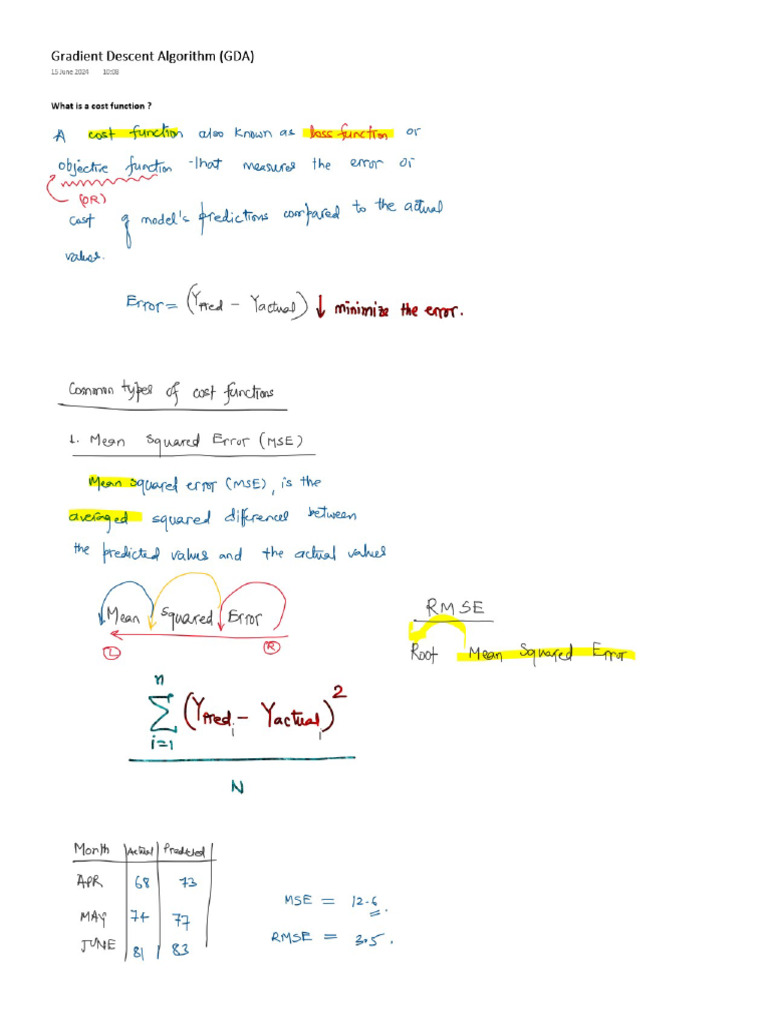 Gradient Descent Algorithm (GDA)
15 June 2024 10:08
What is a cost function ?
A cost function also known as loss function or
objective function that measures the error or
(OR)
cost of model's predictions compared to the actual
values.
Error = (Ypred - Yactual) ↓ minimize the error.
Common types of cost functions
1. Mean Squared Error (MSE)
Mean squared error (MSE), is the
averaged squared differences between
the predicted values and the actual values
Mean Squared Error
L R
RMSE
Root Mean Squared Error
n
∑ (Ypred i - Yactual i)²
i=1
N
Month Actual Predicted
APR 68 73
MAY 74 77
JUNE 81 83
MSE = 12.6
RMSE = 3.5.